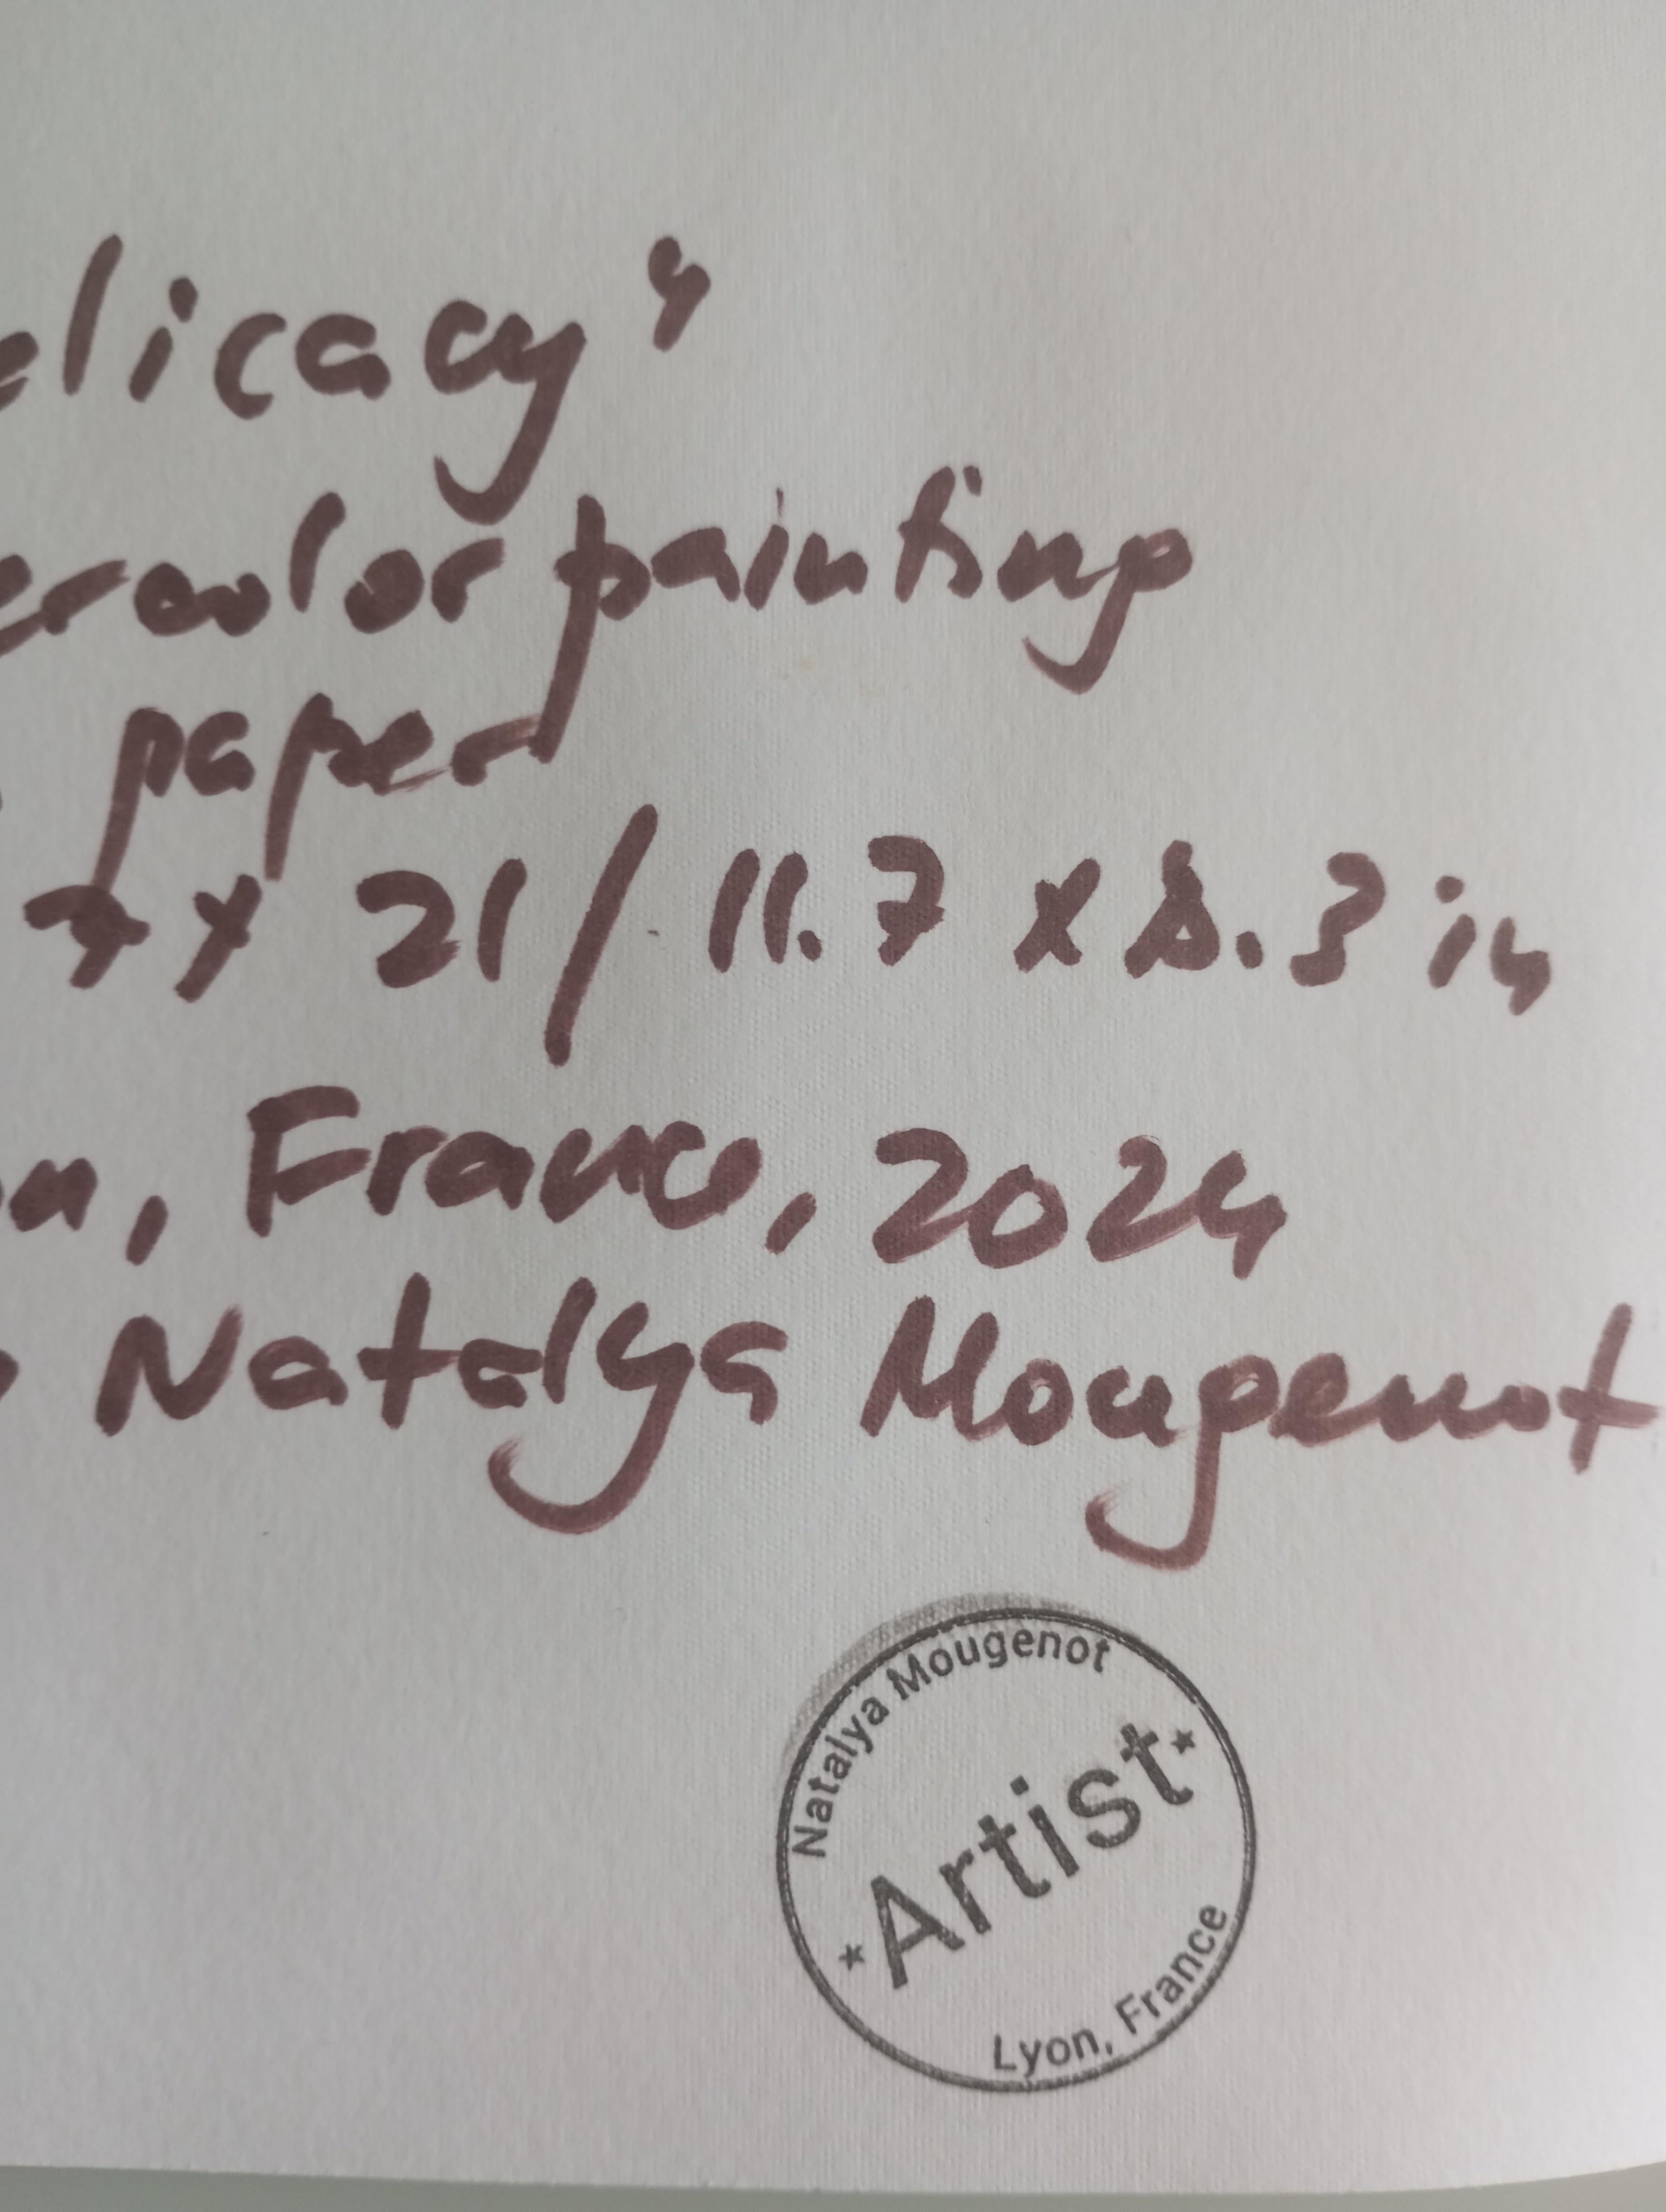 elicacy"
ercolor painting
paper
7 x 21 / 11.7 x 8.3 in
on, France, 2024
Natalya Mougenot
Natalya Mougenot
Artist
Lyon, France